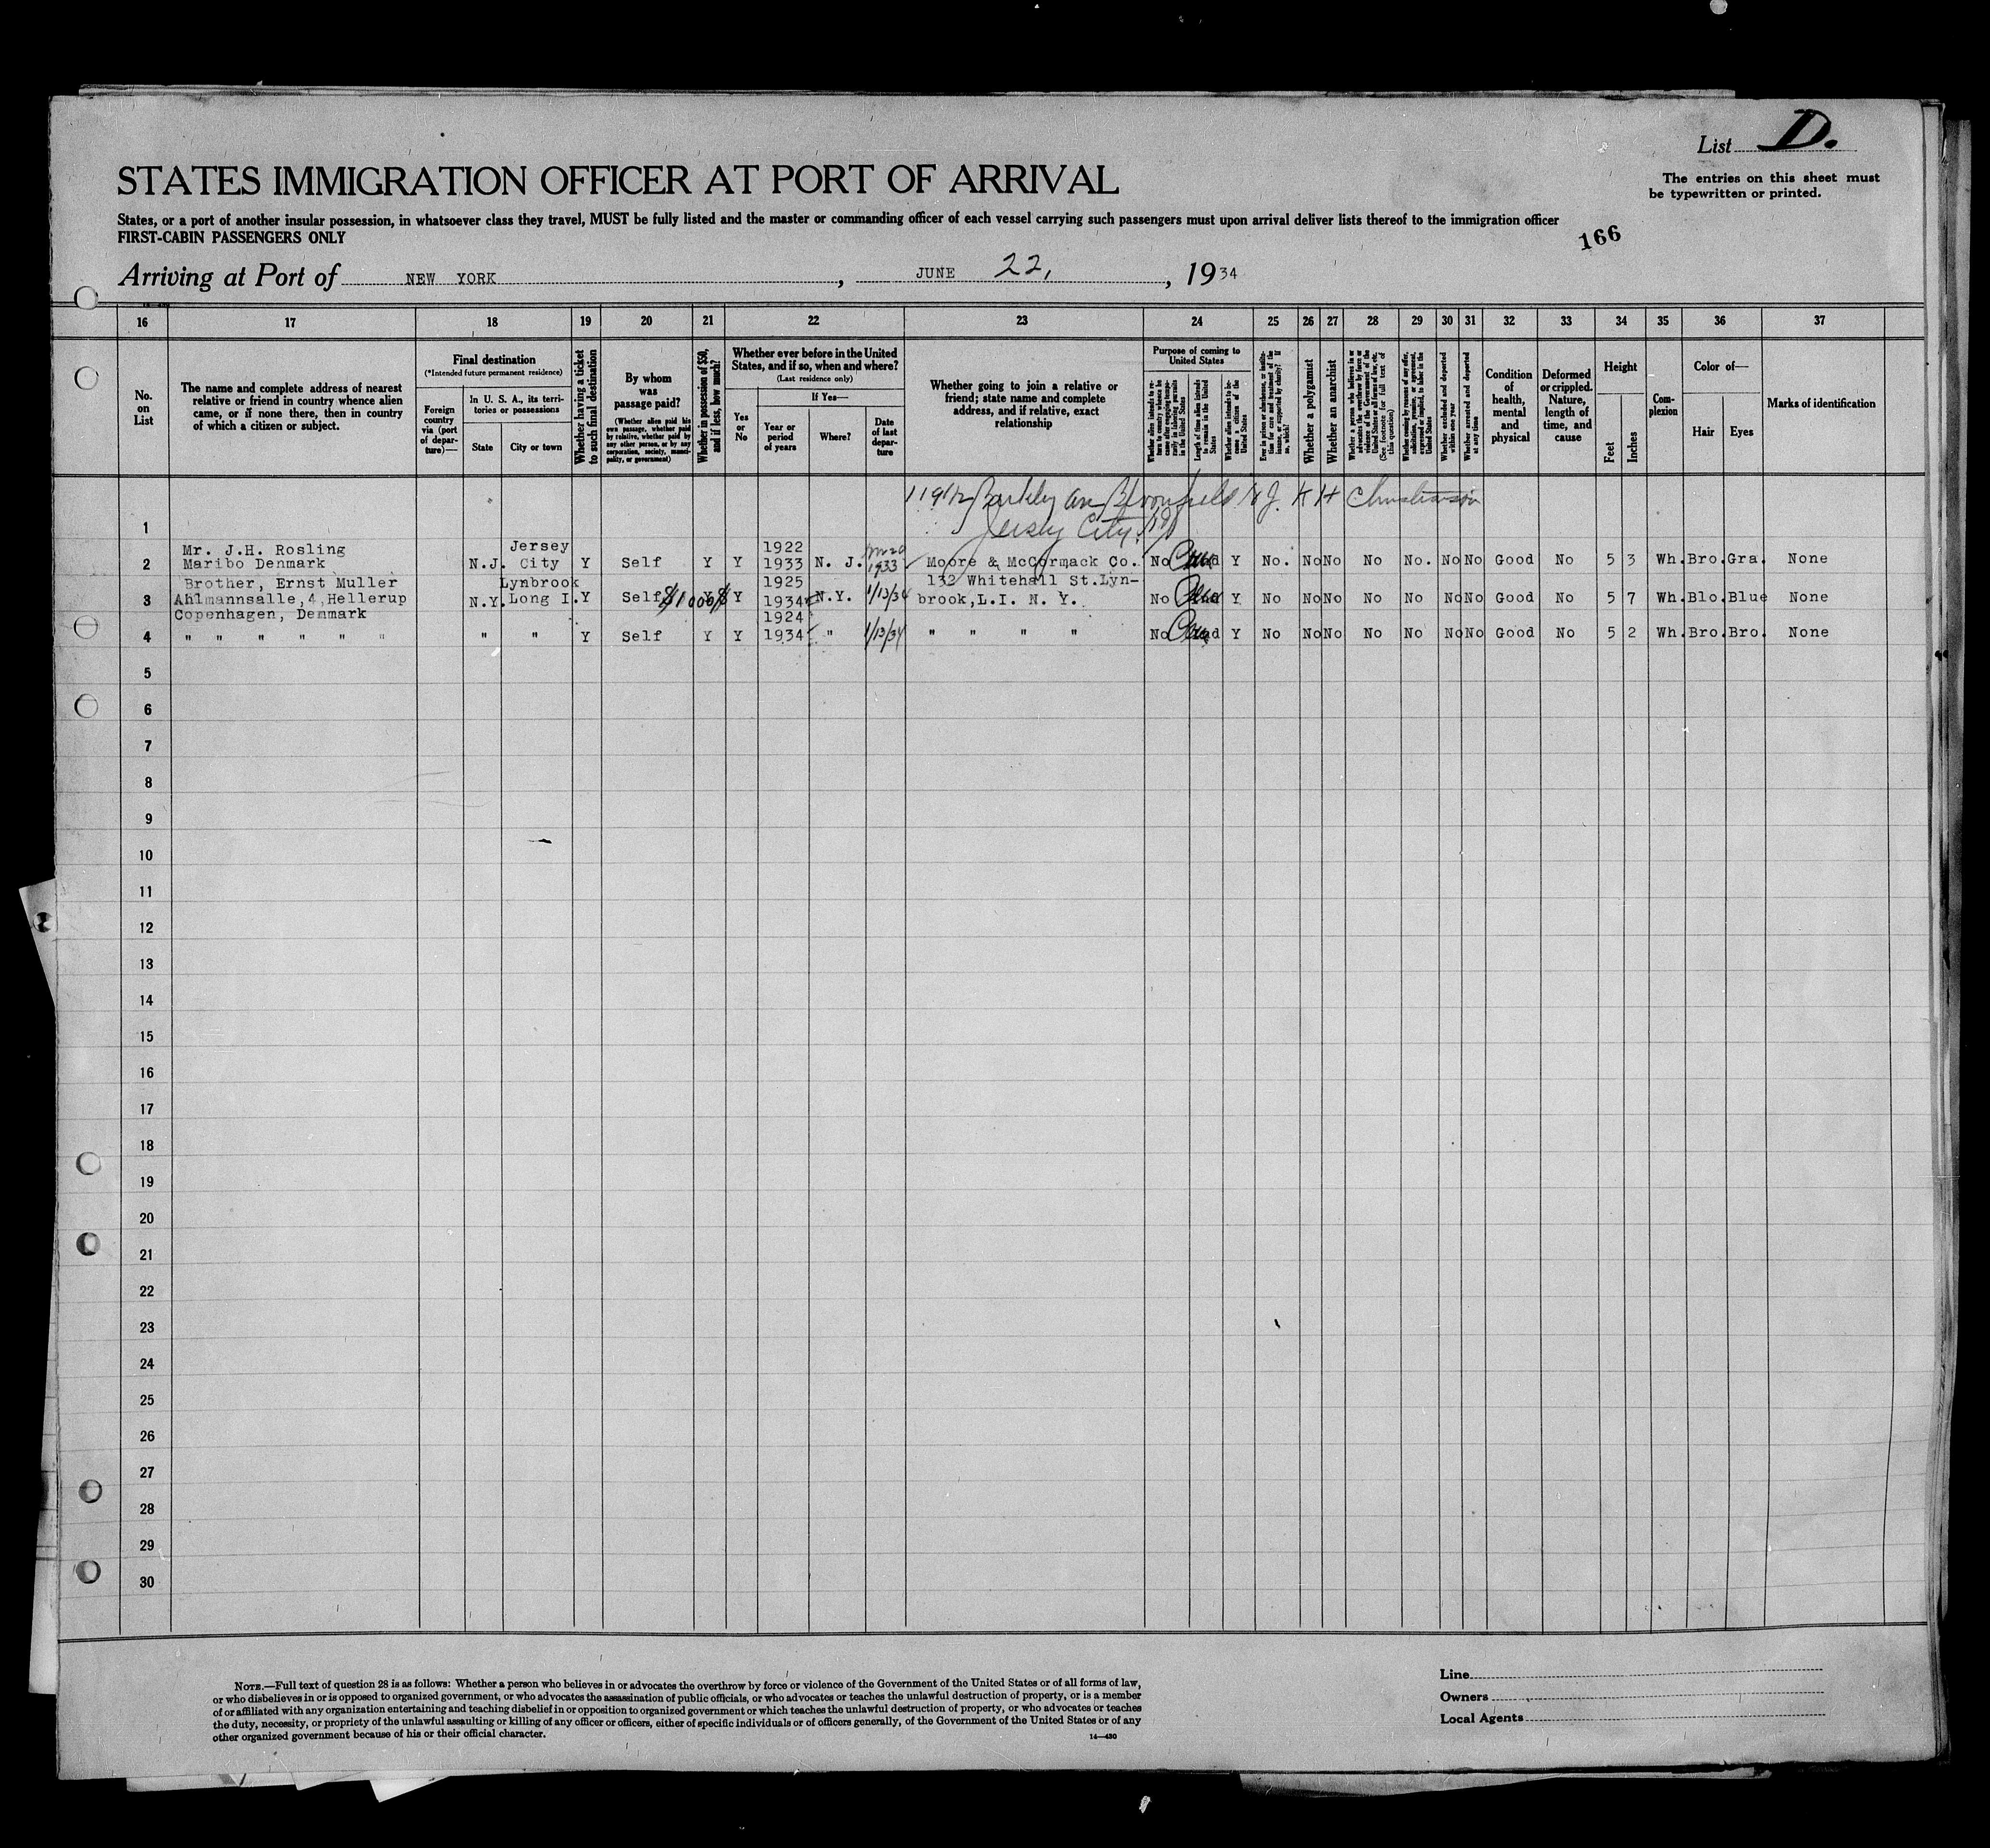 List D.
The entries on this sheet must
be typewritten or printed.
STATES IMMIGRATION OFFICER AT PORT OF ARRIVAL
States, or a port of another insular possession, in whatsoever class they travel, MUST be fully listed and the master or commanding officer of each vessel carrying such passengers must upon arrival deliver lists thereof to the immigration officer
FIRST-CABIN PASSENGERS ONLY
166
Arriving at Port of NEW YORK, JUNE 22, , 1934
16 17 18 19 20 21 22 23 24 25 26 27 28 29 30 31 32 33 34 35 36 37
No. on List
The name and complete address of nearest
relative or friend in country whence alien
came, or if none there, then in country
of which a citizen or subject.
Final destination
(*Intended future permanent residence)
Foreign country via (port of departure)—
In U. S. A., its territories or possessions
State
City or town
Whether having a ticket to such final destination
By whom was passage paid?
(Whether alien paid his own passage, whether paid by relative, whether paid by any other person, or by any corporation, society, municipality, or government)
Whether in possession of $50, and if less, how much?
Whether ever before in the United States, and if so, when and where?
(Last residence only)
Yes or No
If Yes—
Year or period of years
Where?
Date of last departure
Whether going to join a relative or
friend; state name and complete
address, and if relative, exact
relationship
Purpose of coming to United States
Whether alien intends to return to country whence he came after engaging temporarily in laboring pursuits in the United States
Length of time alien intends to remain in the United States
Whether alien intends to become a citizen of the United States
Ever in prison or almshouse, or institution for care and treatment of the insane, or supported by charity? If so, which?
Whether a polygamist
Whether an anarchist
Whether a person who believes in or advocates the overthrow by force or violence of the Government of the United States or all forms of law, etc. (See footnote for full text of this question)
Whether coming by reason of any offer, solicitation, promise, or agreement, expressed or implied, to labor in the United States
Whether excluded and deported within one year
Whether arrested and deported at any time
Condition of health, mental and physical
Deformed or crippled. Nature, length of time, and cause
Height
Feet
Inches
Complexion
Color of—
Hair
Eyes
Marks of identification
119 1/2 Bloomfield N J. K H Christianson
1 Jersey City.
Mr. J.H. Rosling Jersey 1922
2 Maribo Denmark N.J. City Y Self Y Y 1933 N. J. 1933 Moore & McCormack Co. No Y No. No No No No. No No Good No 5 3 Wh. Bro. Gra. None
Brother, Ernst Muller Lynbrook 1925 132 Whitehall St.Lyn-
3 Ahlmannsalle,4,Hellerup N.Y. Long I. Y Self $1000 Y Y 1934 N.Y. 1/13/34 brook,L.I. N. Y. No Y No No No No No No No Good No 5 7 Wh. Blo. Blue None
Copenhagen, Denmark 1924
4 " " " " " " " " Y Self Y Y 1934 " 1/13/34 " " " " No Y No No No No No No No Good No 5 2 Wh. Bro. Bro. None
5
6
7
8
9
10
11
12
13
14
15
16
17
18
19
20
21
22
23
24
25
26
27
28
29
30
NOTE.—Full text of question 28 is as follows: Whether a person who believes in or advocates the overthrow by force or violence of the Government of the United States or of all forms of law,
or who disbelieves in or is opposed to organized government, or who advocates the assassination of public officials, or who advocates or teaches the unlawful destruction of property, or is a member
of or affiliated with any organization entertaining and teaching disbelief in or opposition to organized government or which teaches the unlawful destruction of property, or who advocates or teaches
the duty, necessity, or propriety of the unlawful assaulting or killing of any officer or officers, either of specific individuals or of officers generally, of the Government of the United States or of any
other organized government because of his or their official character.
14—430
Line
Owners
Local Agents